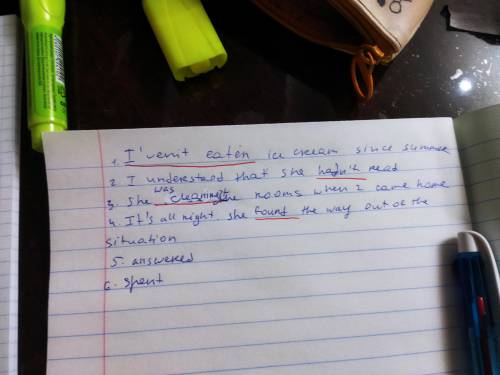 1. I'venit eaten ice cream since summer
2 I understood that she hadn't read
3. She was cleaning the rooms when I came home
4. It's all right. she found the way out of the
situation
5. answered
6. spent